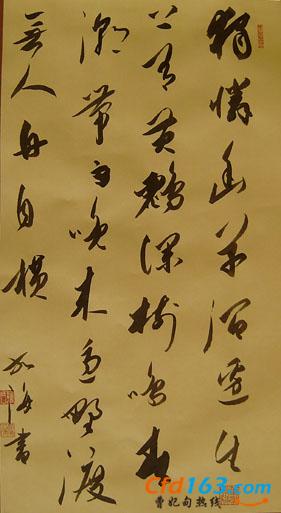 獨憐幽草澗邊生
上有黃鸝深樹鳴春
潮帶雨晚來急野渡
無人舟自橫
書
Cfd163.com
曹妃甸热线